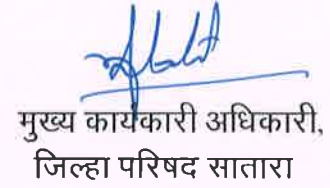 मुख्य कार्यकारी अधिकारी,
जिल्हा परिषद सातारा